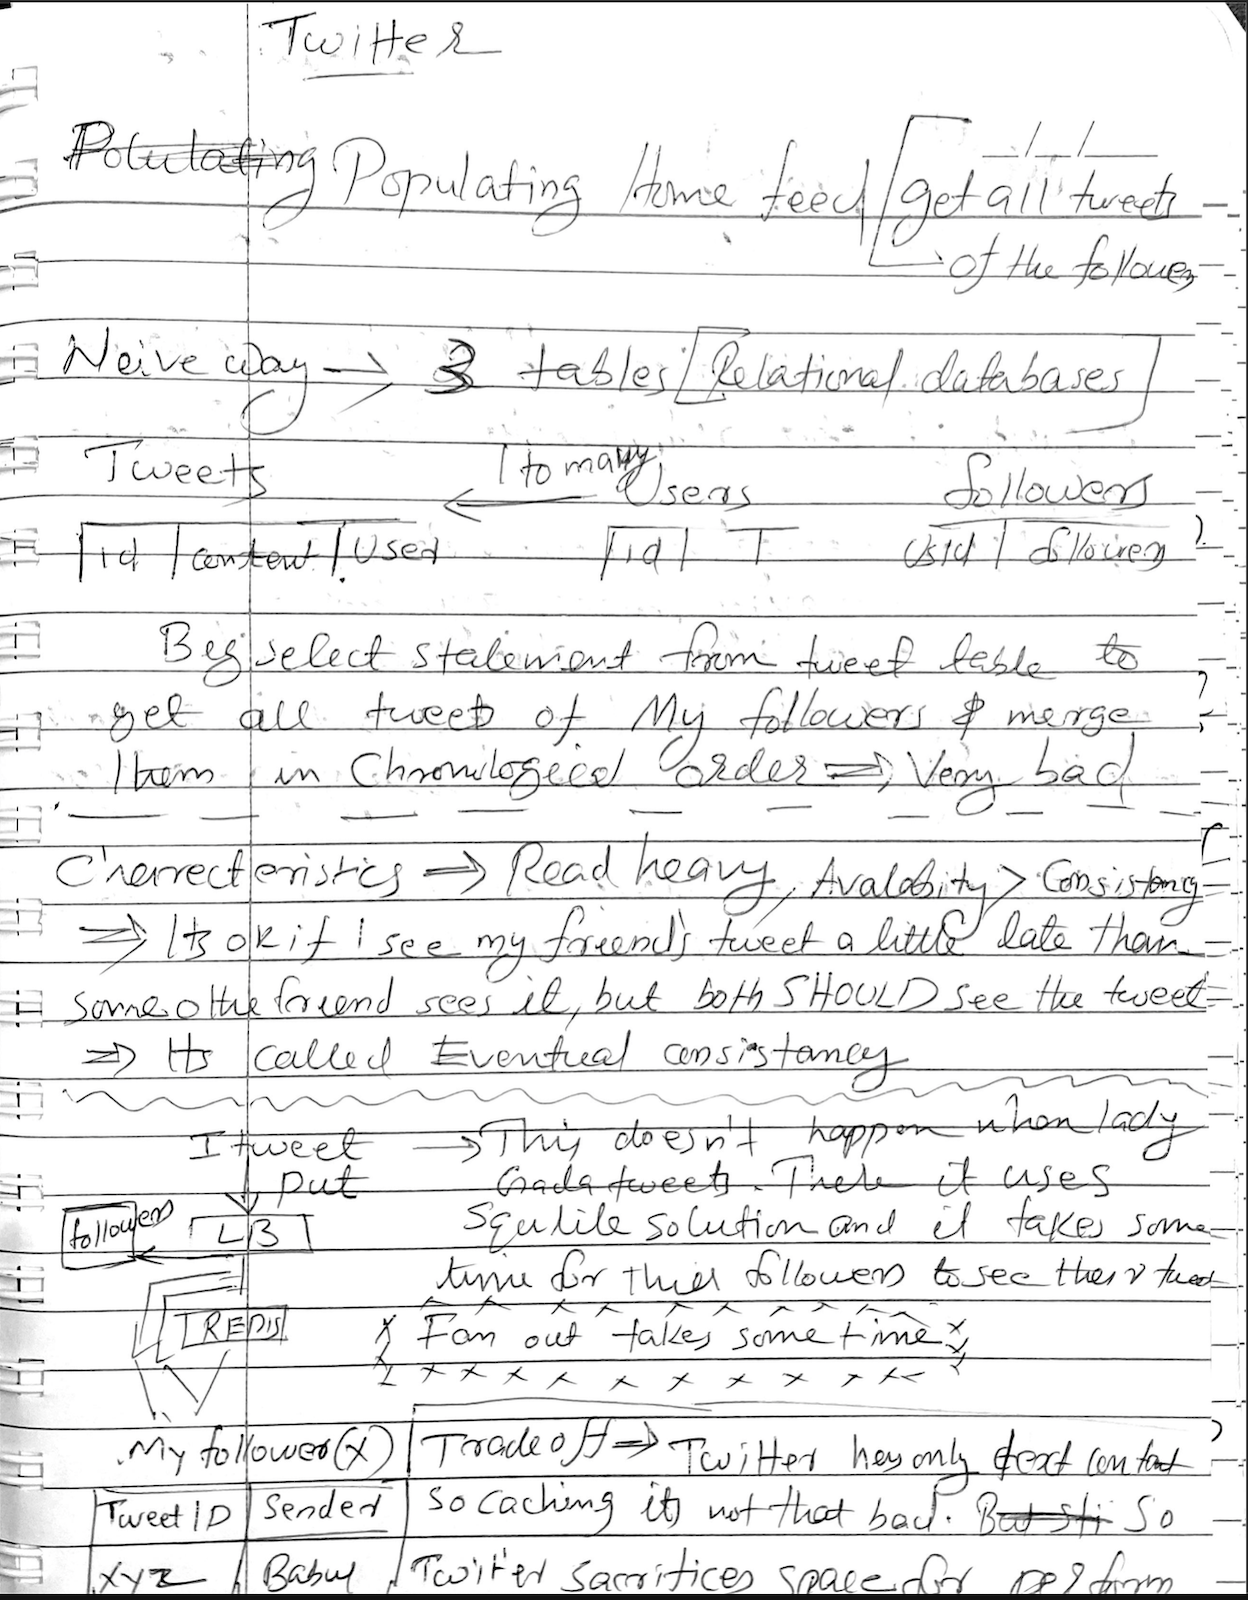 Twitter
Populating Populating Home feed get all tweets
of the follower
Neive way → 3 tables [Relational databases]
Tweets 1 to many Users followers
id | content | User id | usid | follower
Beg select statement from tweet table to
get all tweets of My followers & merge
them in Chronological order ⇒ Very bad
Charrecteristics ⇒ Read heavy, Avalabity > Consistancy
⇒ Its ok if I see my friend's tweet a little late than
some othe friend sees it, but both SHOULD see the tweet
⇒ Its called Eventual consistancy
I tweet → This doesn't happen when lady
put Gaga tweets. There it uses
followers LB solution and it takes some
time for followers to see tweet
REDIS Fan out takes some time
My follower(x) Trade off ⇒ Twitter hey only text content
Tweet ID | Sender so caching its not that bad. But So
xyz | Babul Twitter sacrifices space for perform